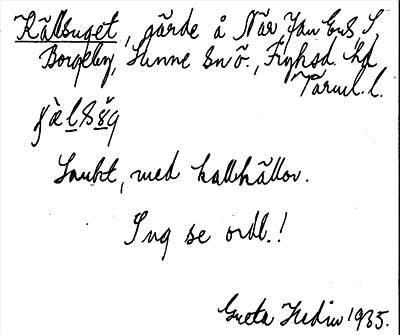 Källsuget, gärde å När, Jan Ers S,
Borgeby, Sunne sn ö., Fryksd. hd
Värml. l.
Sankt, med kallhällor.
Sug se ordb.!
Greta Hedin 1935.